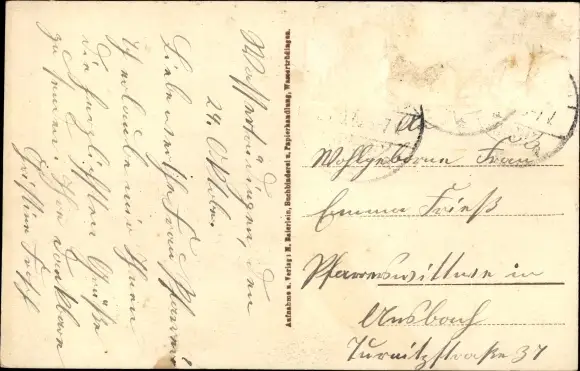 Wassertrüdingen, den
24. Oktober
Liebwerthe Frau Pfarrer!
Ich erlaube mir Ihnen
die herzlichsten Grüße
zu senden Ihre dankbare
Aufnahme u. Verlag: H. Baierlein, Buchbinderei u. Papierhandlung, Wassertrüdingen.
An
Wohlgeborne Frau
Emma Frieß
Pfarrerswittwe in
Ansbach
Turnitzstraße 37